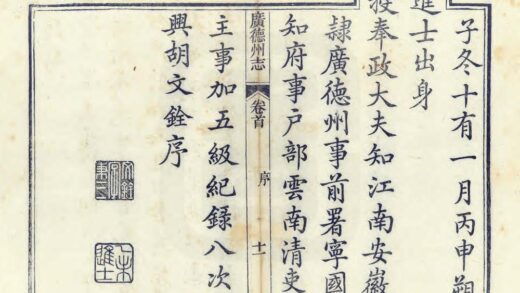 子冬十有一月丙申朔
進士出身
授奉政大夫知江南安徽
隸廣德州事前署寧國
知府事戶部雲南清吏
廣德州志 卷首 序 十一
主事加五級紀錄八次
興胡文銓序
進士